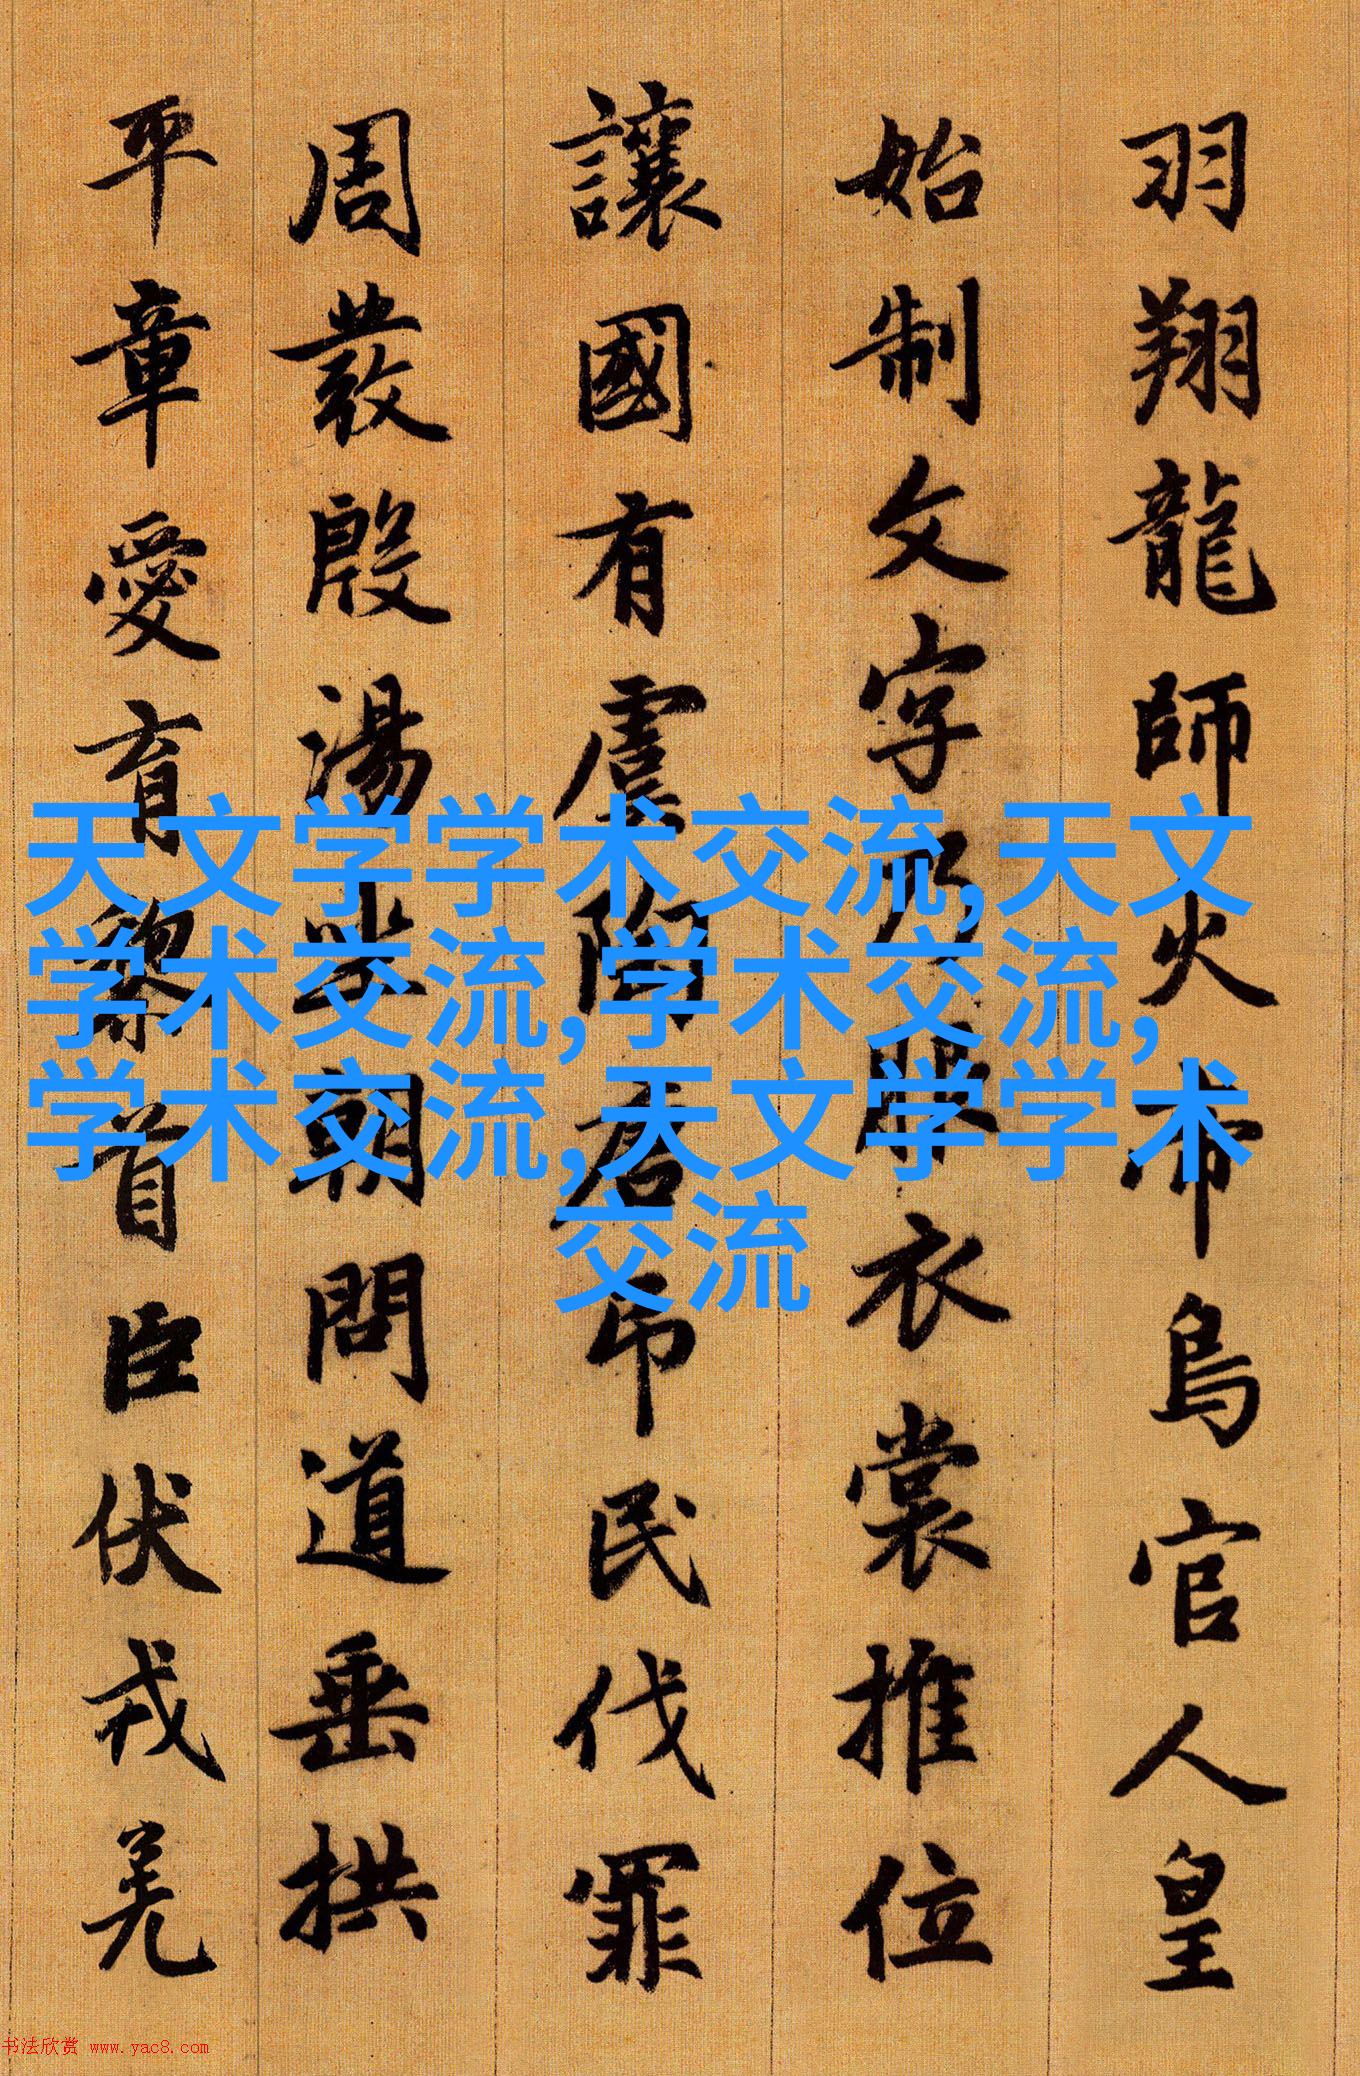 羽翔龍師火帝鳥官人皇
始制文字乃服衣裳推位
讓國有虞陶唐吊民伐罪
周發殷湯坐朝問道垂拱
平章愛育黎首臣伏戎羌
天文学学术交流,天文
学术交流,学术交流,
学术交流,天文学学术
交流
书法欣赏 www.yac8.com